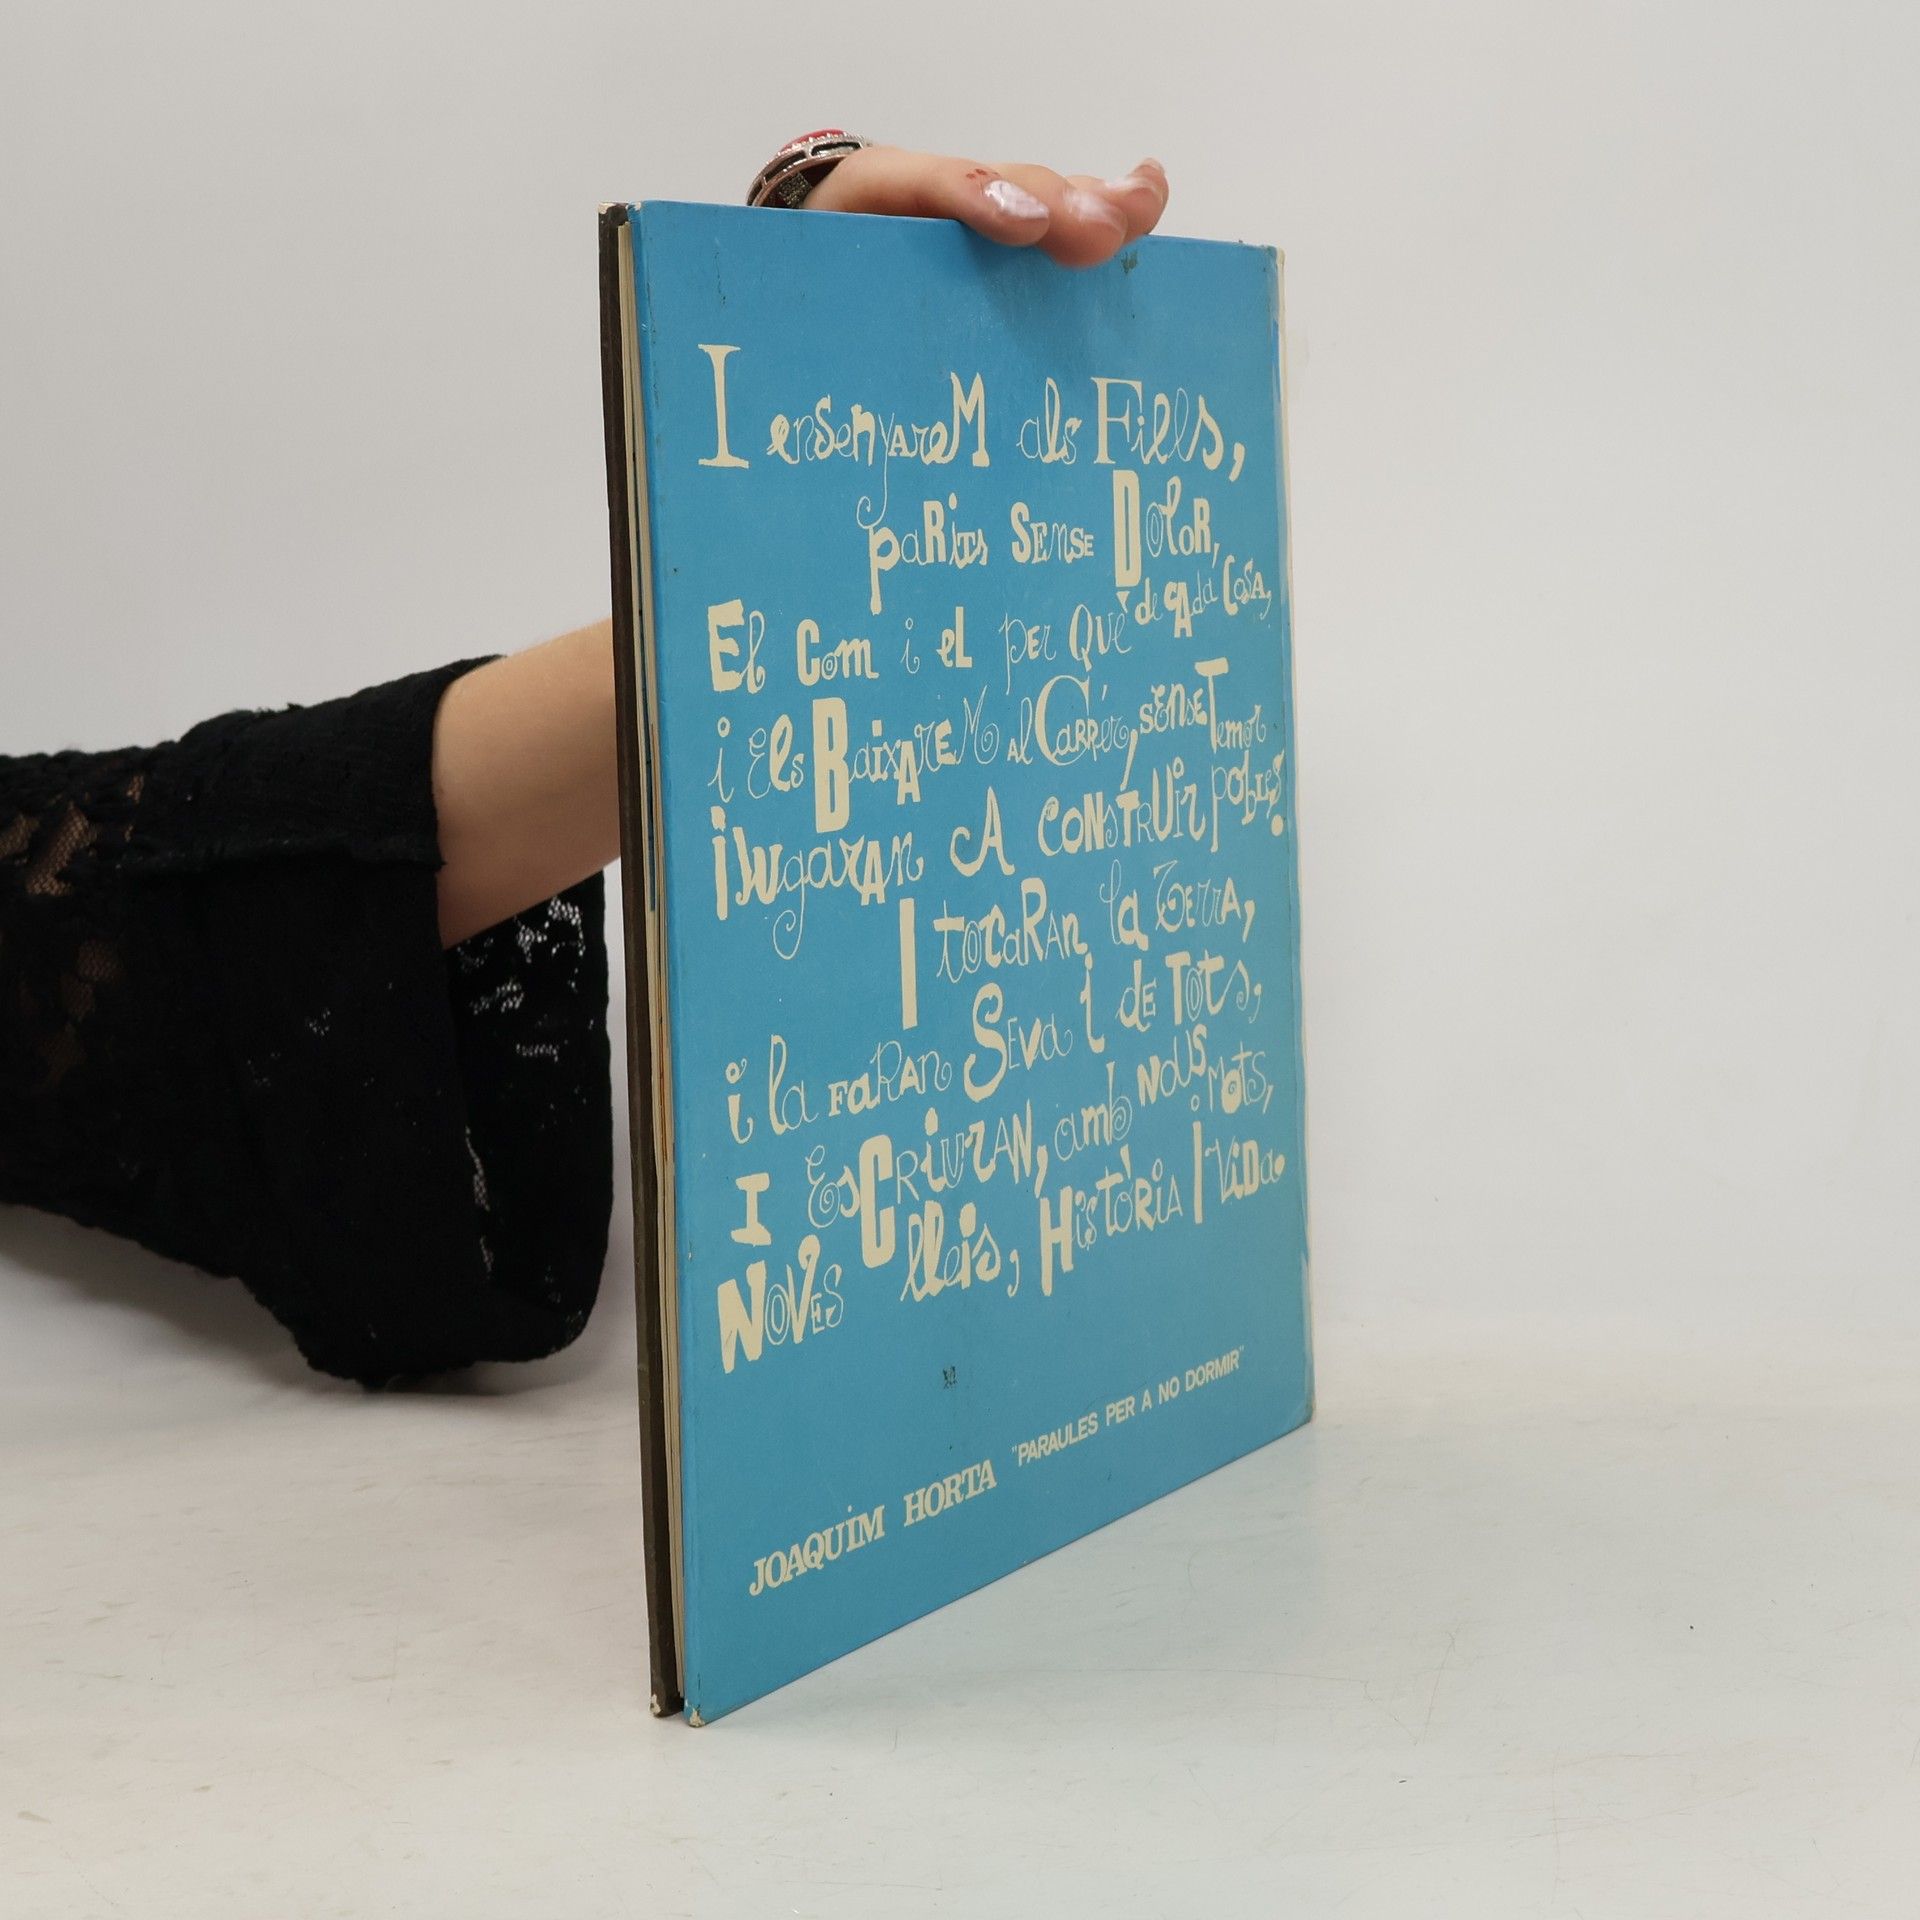 I ensenyarem als Fills,
parits sense Dolor,
El com i el per què de cada cosa,
i els Baixarem al Carrer, sense Temor
i jugaran a construir pobles.
I tocaran la Terra,
i la faran Seva i de Tots,
I esCriuran, amb nous mots,
Noves lleis, Història i vida.
JOAQUIM HORTA "PARAULES PER A NO DORMIR"